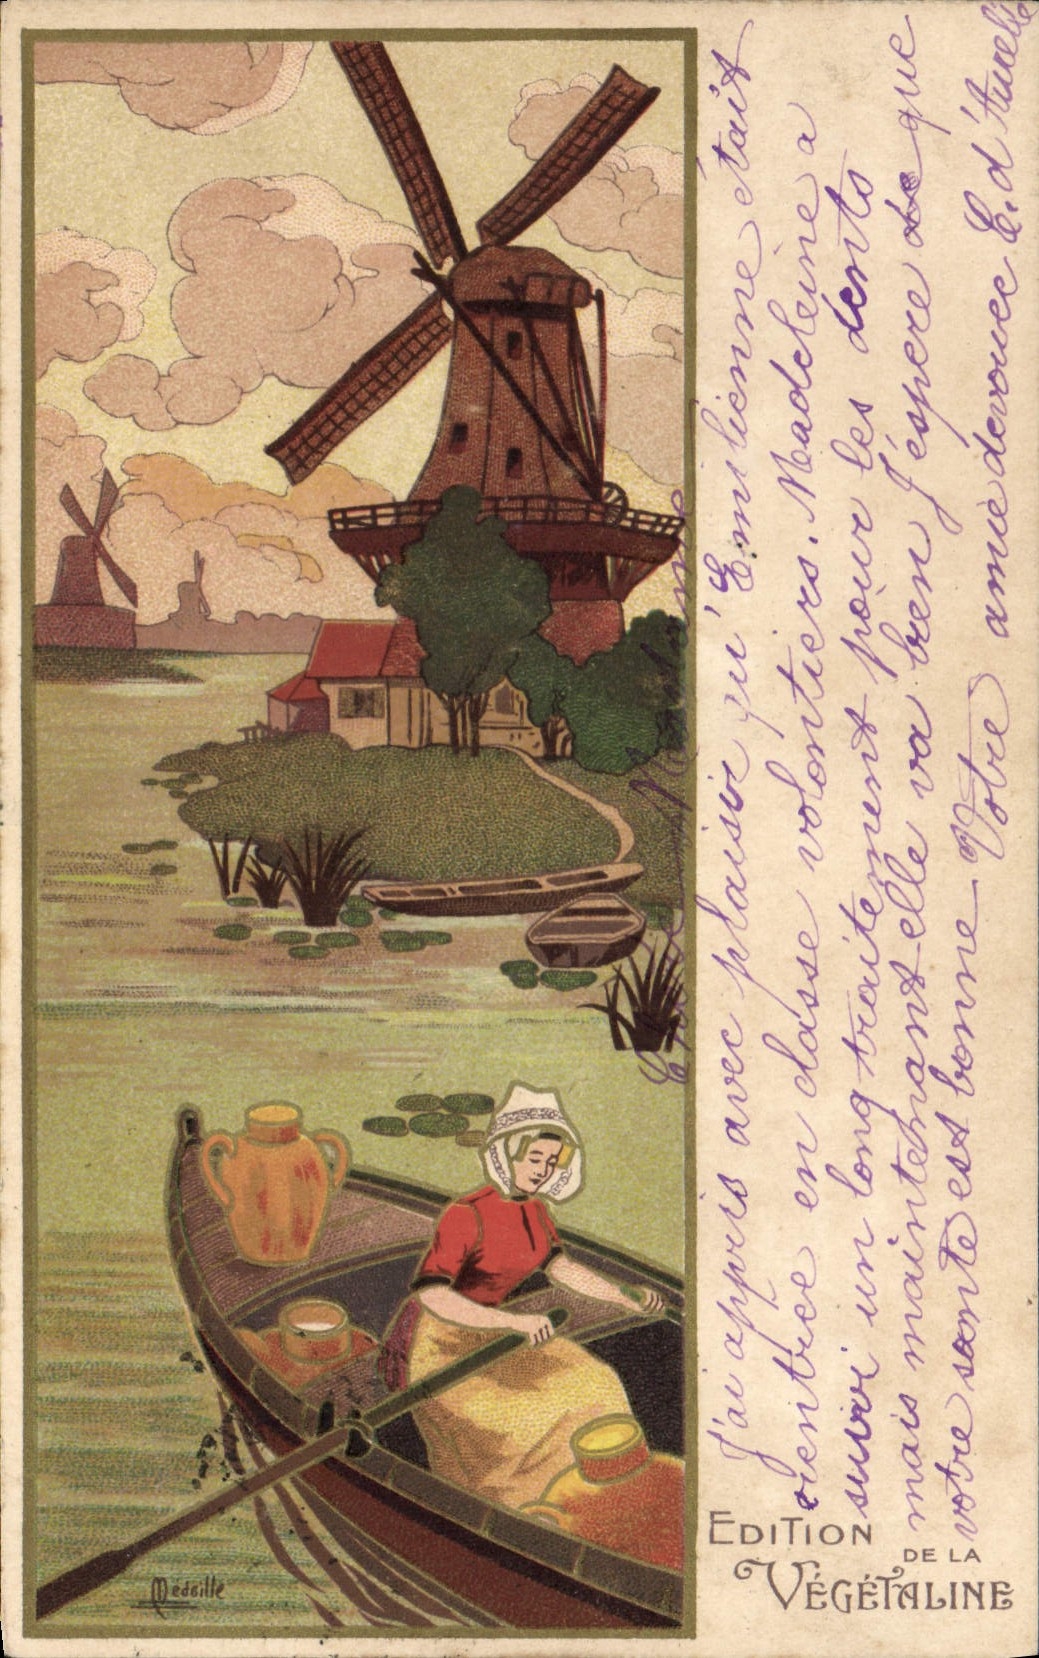 J'ai appris avec plaisir qu'Emilienne était
rentree en classe volontiers. Madeleine a
suivi un long traitement pour les dents
mais maintenant elle va bien J'espere de que
votre sante est bonne - Votre amie devouee E. d'
EDITION
DE LA
VÉGÉTALINE
Médaille